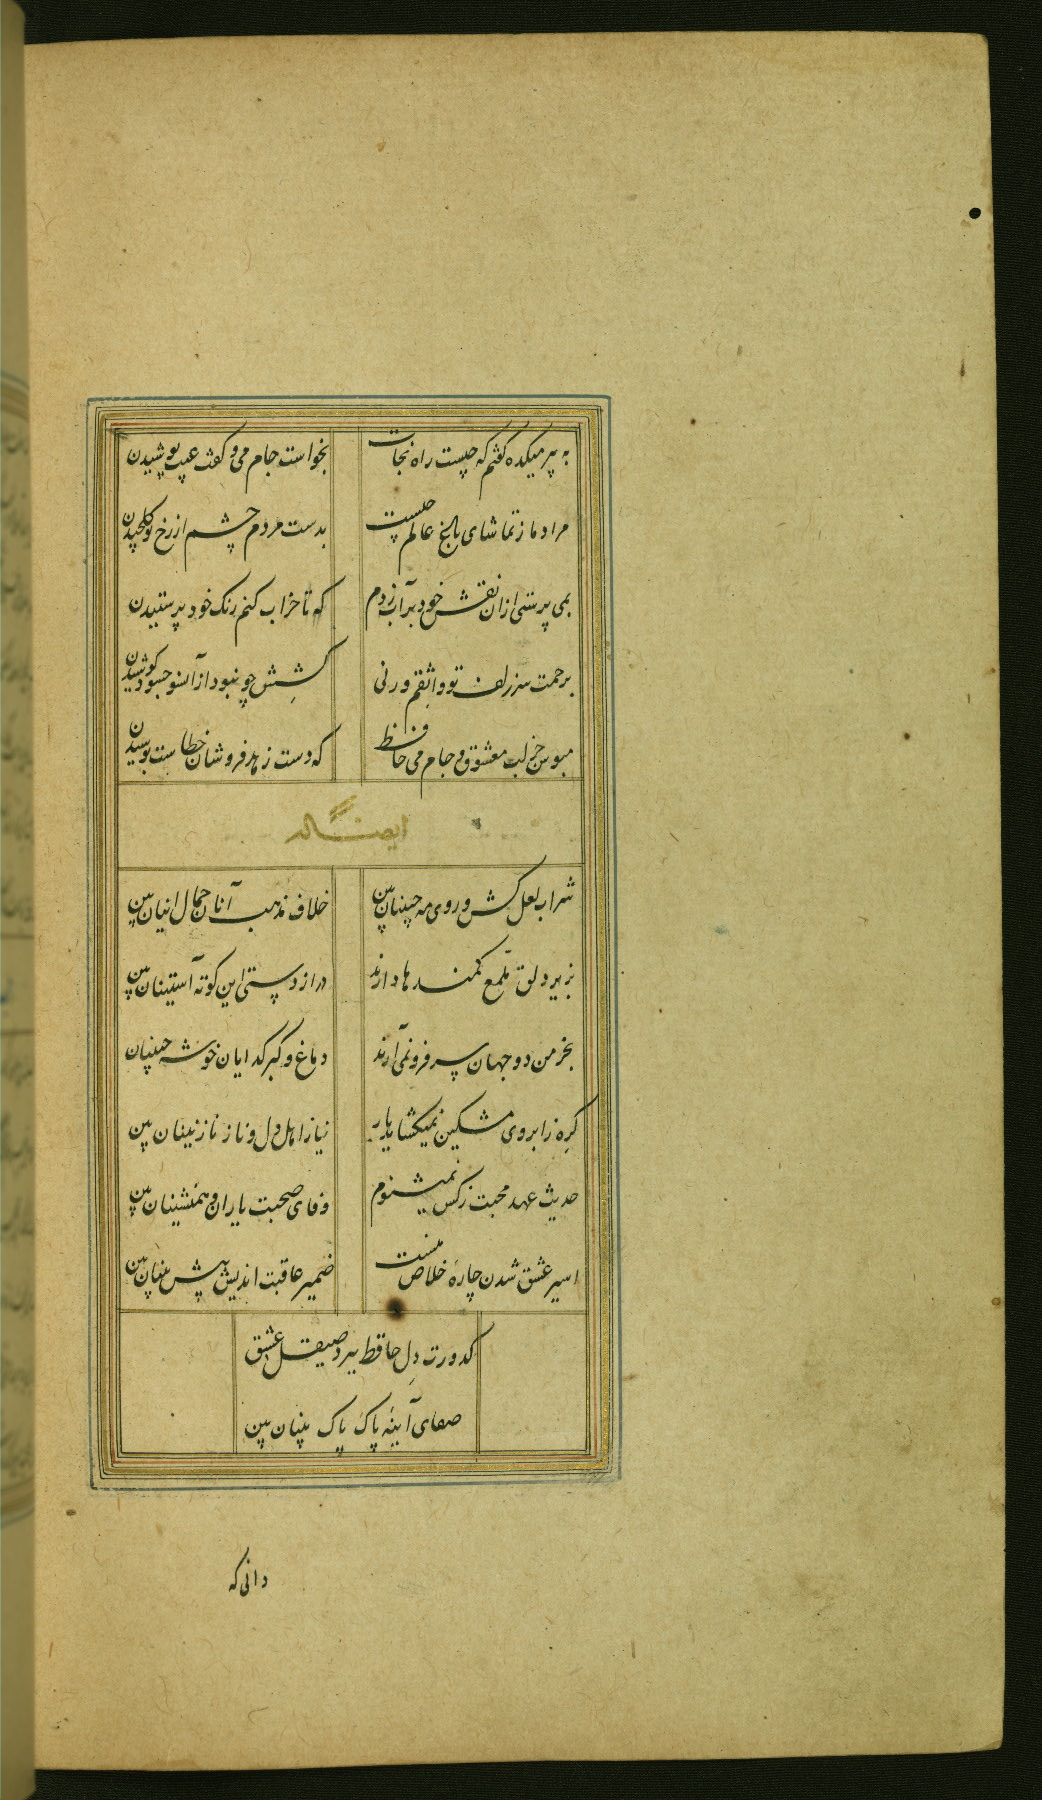 به پیر میکده گفتم که چیست راه نجات
بخواست جام می و گفت عیب پوشیدن
مراد ما ز تماشای باغ عالم چیست
بدست مردم چشم از رخ تو گل چیدن
بمی پرستی ازان نقش خود بر آب زدم
که تا خراب کنم رنک خود پرستیدن
برحمت سر زلف تو واثقم ورنی
کشش چو نبود از آنسو چسود کوشیدن
مبوس جز لب معشوق و جام می حافظ
که دست زهد فروشان خطاست بوسیدن
ایضاله
شراب لعل کش و روی مه جبینان بین
خلاف مذهب آنان جمال اینان بین
بزیر دلق ملمع کمندها دارند
دراز دستی این کوته آستینان بین
بخرمن دو جهان سر فرو نمی آرند
دماغ و کبر کدایان خوشه چینان
کره ز ابروی مشکین نمیکشاید یار
نیاز اهل دل و ناز نازنینان بین
حدیث عهد محبت ز کس نمیشنوم
وفای صحبت یاران و همنشینان بین
اسیر عشق شدن چارهٔ خلاص منست
ضمیر عاقبت اندیش پیش بینان بین
کدورت دل حافظ ببرد صیقل عشق
صفای آینهٔ پاک پاک بینان بین
دانی که